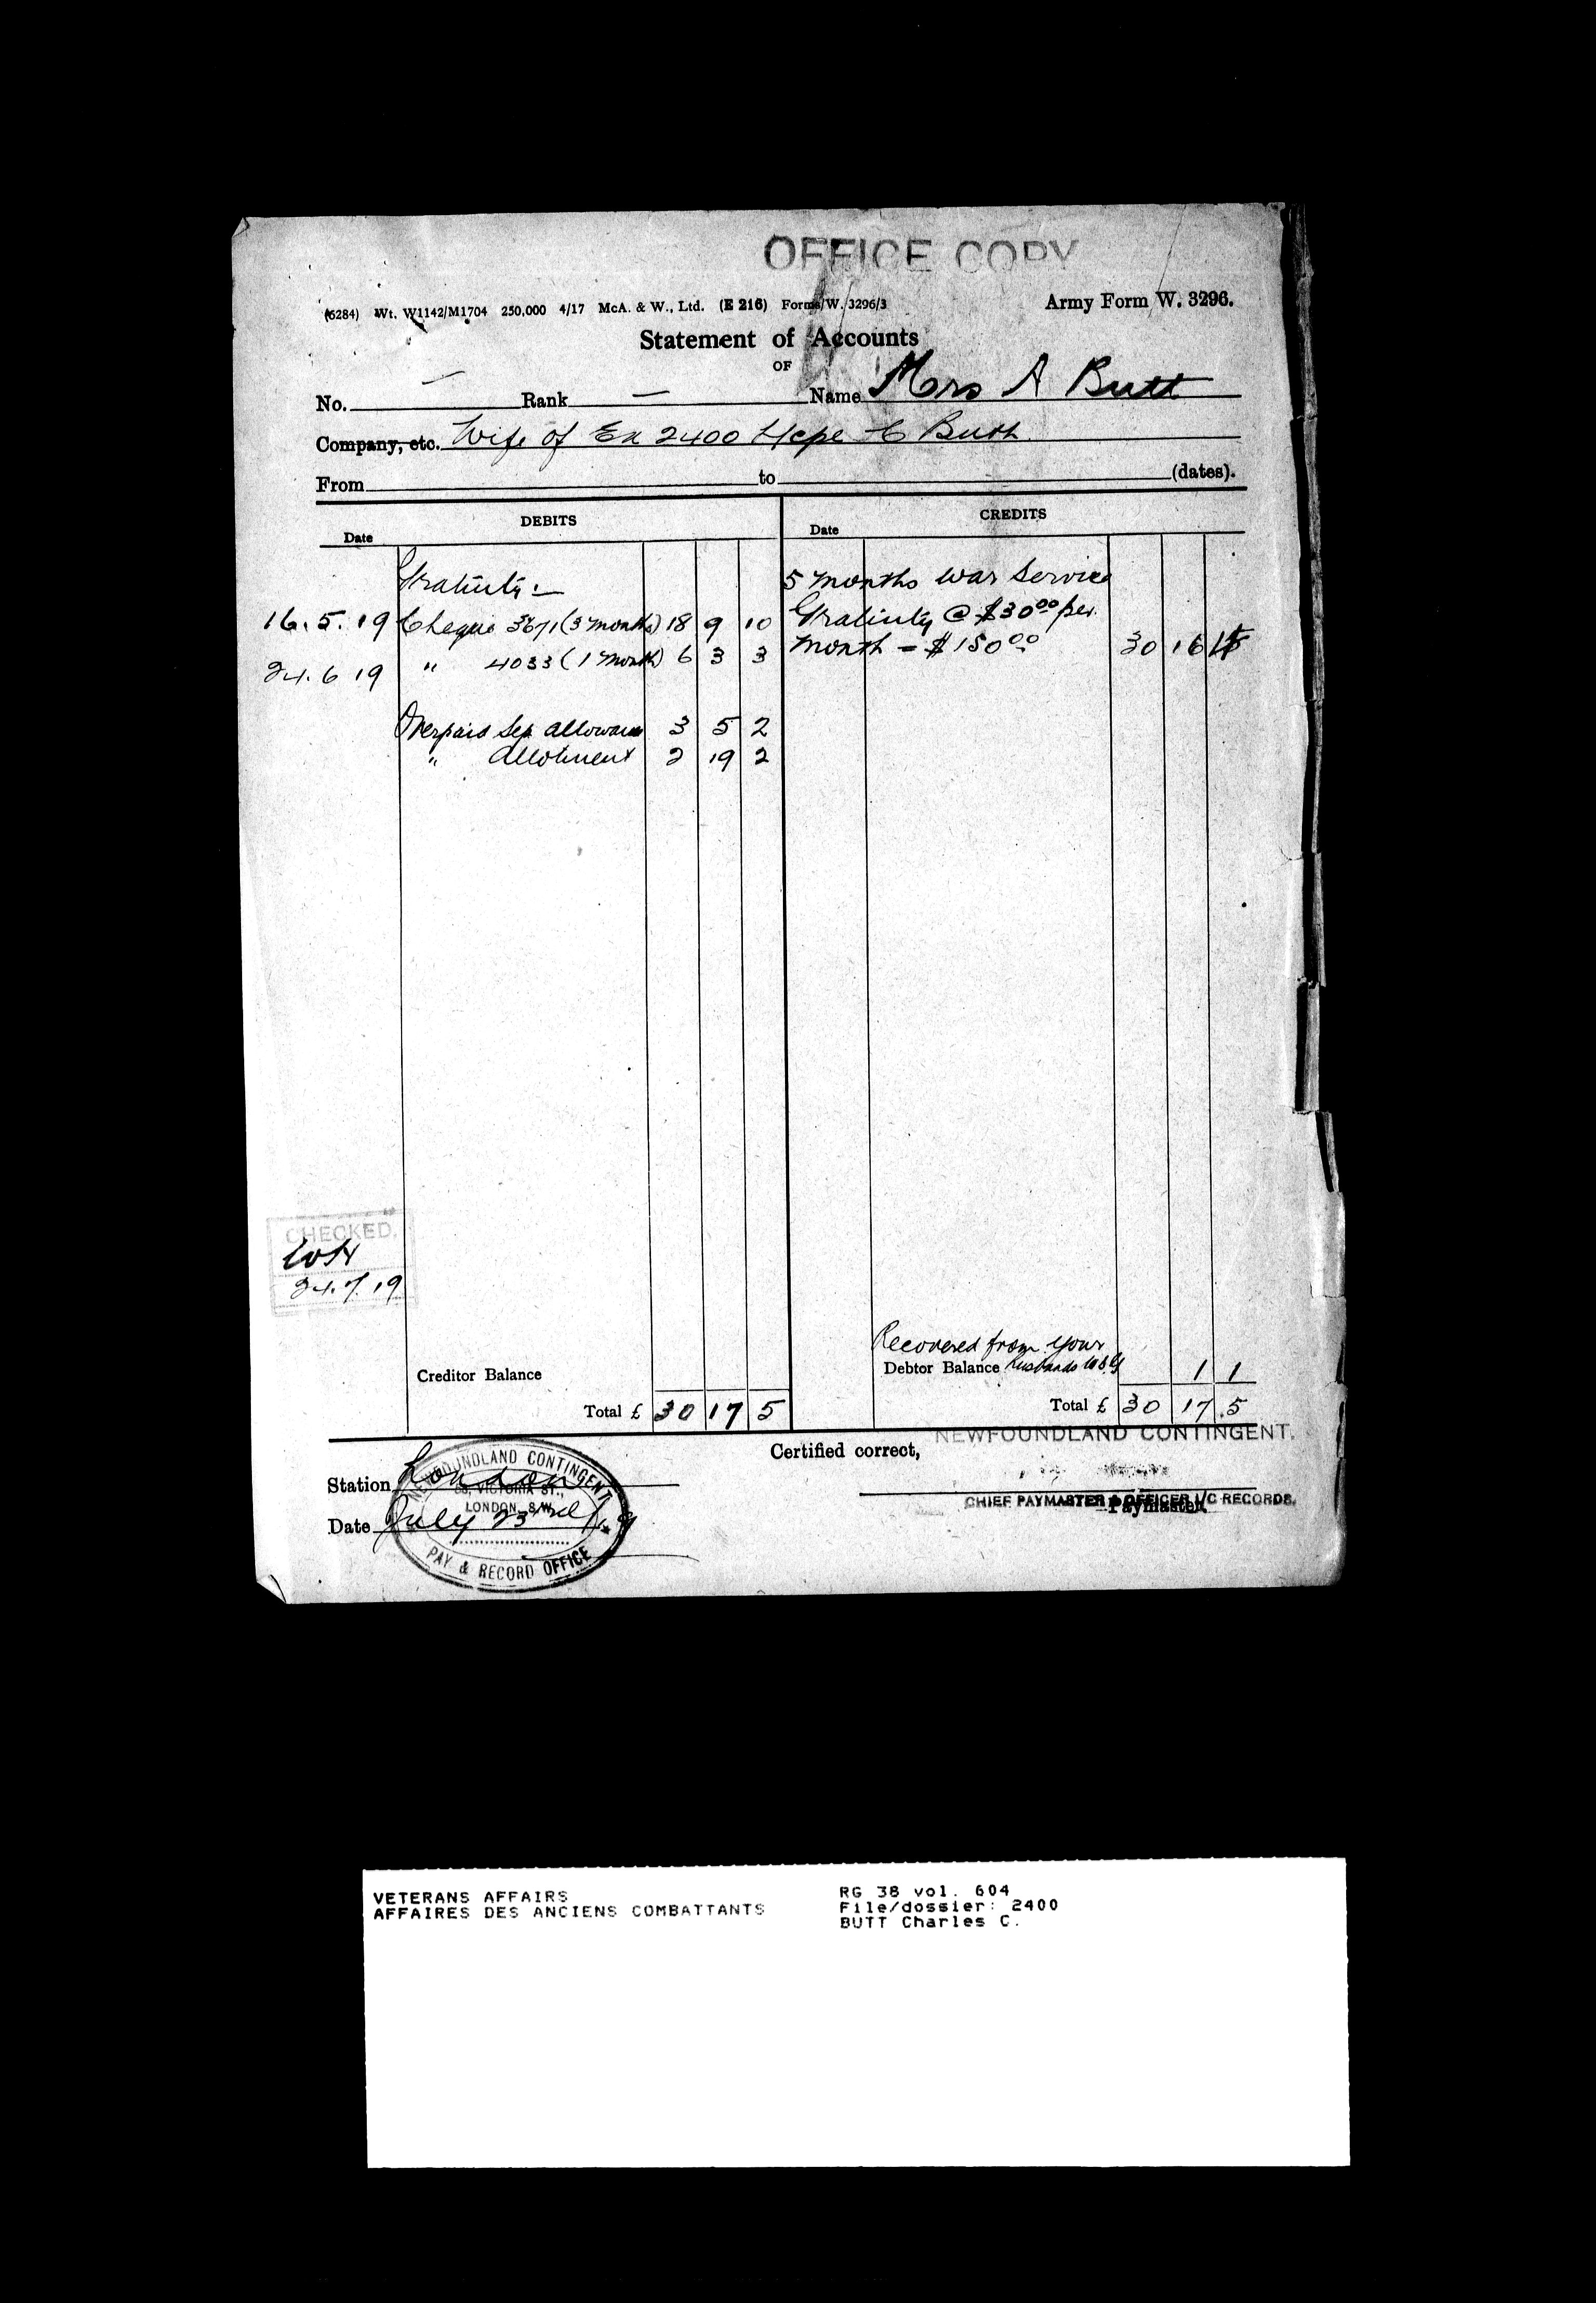 OFFICE COPY
(6284) Wt. W1142/M1704 250,000 4/17 McA. & W., Ltd. (E 216) Forms/W. 3296/3 Army Form W. 3296.
Statement of Accounts
OF
No. — Rank — Name Mrs A Butt
Company, etc. Wife of Ex 2400 L/Cpl C Butt.
From to (dates).
DEBITS CREDITS
Date Date
Gratuity:— 5 months War Service
16.5.19 Cheque 3671 (3 months) 18 9 10 Gratuity @ $30 00 per
24.6 19 " 4033 (1 month) 6 3 3 month = $150 00 30 16
Overpaid Sep allowance 3 5 2
" Allotment 2 19 2
CHECKED.
24.7.19
Recovered from your
Creditor Balance Debtor Balance husbands W.S.G 1 1
Total £ 30 17 5 Total £ 30 17 5
NEWFOUNDLAND CONTINGENT.
Certified correct,
Station London
CHIEF PAYMASTER & OFFICER I/C RECORDS.
Paymaster.
Date July 23rd/19
NEWFOUNDLAND CONTINGENT
58, VICTORIA ST.,
LONDON, S.W.
PAY & RECORD OFFICE
VETERANS AFFAIRS RG 38 vol. 604
AFFAIRES DES ANCIENS COMBATTANTS File/dossier: 2400
BUTT Charles C.